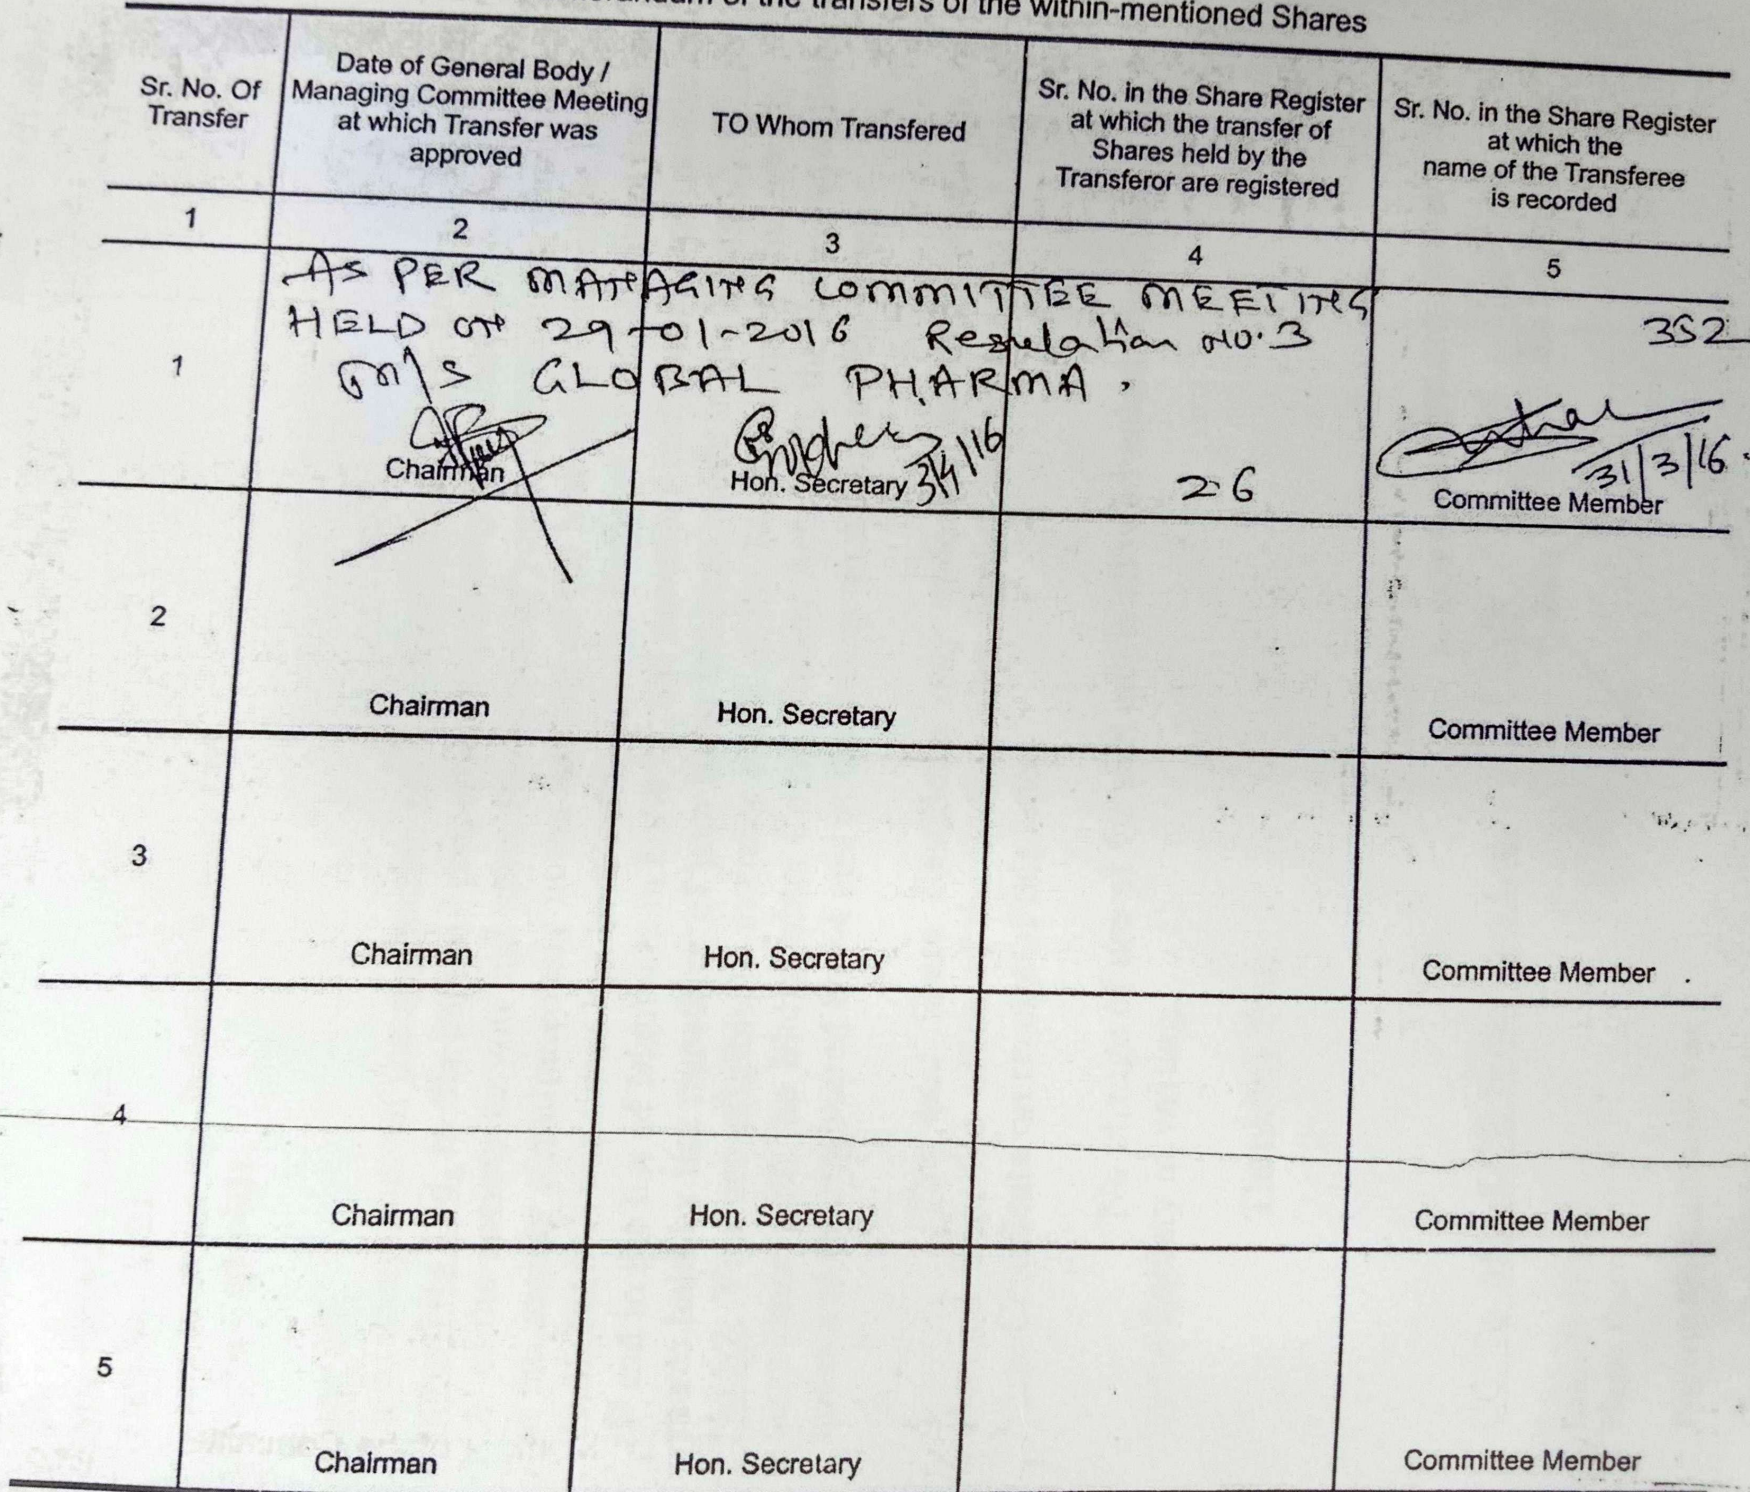 of the transfers of the within-mentioned Shares
Sr. No. Of
Transfer
Date of General Body /
Managing Committee Meeting
at which Transfer was
approved
TO Whom Transfered
Sr. No. in the Share Register
at which the transfer of
Shares held by the
Transferor are registered
Sr. No. in the Share Register
at which the
name of the Transferee
is recorded
1 2 3 4 5
AS PER MANAGING COMMITTEE MEETING
HELD ON 29-01-2016 Resulation NO.3 352
1 M/S GLOBAL PHARMA.
Chairman Hon. Secretary 26 31/3/16
Committee Member
2
Chairman Hon. Secretary Committee Member
3
Chairman Hon. Secretary Committee Member
4
Chairman Hon. Secretary Committee Member
5
Chairman Hon. Secretary Committee Member